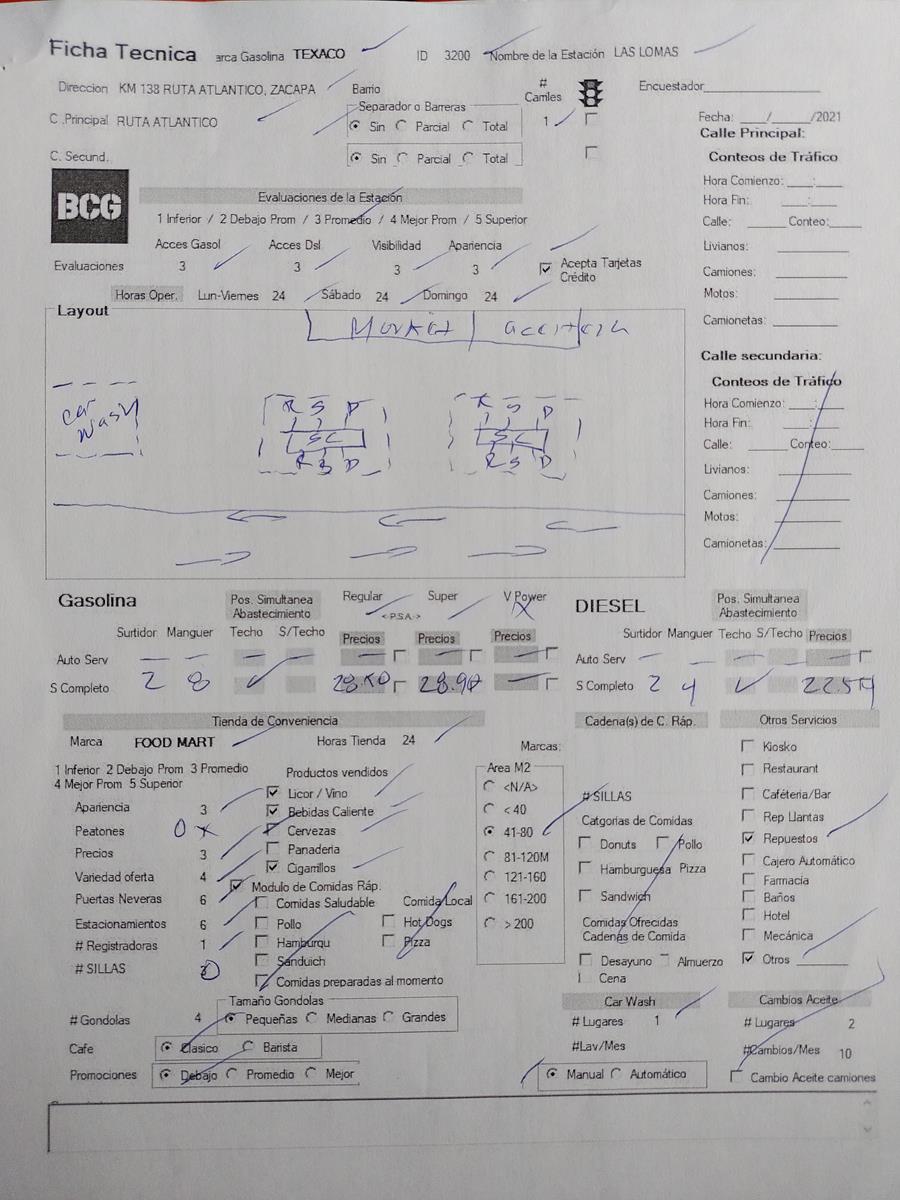 Ficha Tecnica arca Gasolina TEXACO ID 3200 Nombre de la Estación LAS LOMAS
Direccion KM 138 RUTA ATLANTICO, ZACAPA Barrio # Carriles Encuestador
Separador o Barreras
C .Principal RUTA ATLANTICO Sin Parcial Total 1
Fecha: ___/_____/2021
Calle Principal:
C. Secund. Sin Parcial Total
Conteos de Tráfico
BCG
Hora Comienzo: ___:___
Hora Fin: ___:___
Calle: ____ Conteo:____
Livianos:
Camiones:
Motos:
Camionetas:
Evaluaciones de la Estación
1 Inferior / 2 Debajo Prom / 3 Promedio / 4 Mejor Prom / 5 Superior
Acces Gasol Acces Dsl Visibilidad Apariencia
Evaluaciones 3 3 3 3 Acepta Tarjetas Crédito
Horas Oper. Lun-Viernes 24 Sábado 24 Domingo 24
Layout
Market
car wash
R S D R S D
SC SC
R S D R S D
Calle secundaria:
Conteos de Tráfico
Hora Comienzo: ___:___
Hora Fin: ___:___
Calle: ____ Conteo:____
Livianos:
Camiones:
Motos:
Camionetas:
Gasolina Pos. Simultanea Abastecimiento Regular Super V Power
<-P.S.A.->
Surtidor Manguer Techo S/Techo Precios Precios Precios
Auto Serv — — — — — — —
S Completo 2 8 ✓ 28.90 —
DIESEL Pos. Simultanea Abastecimiento
Surtidor Manguer Techo S/Techo Precios
Auto Serv — — — — —
S Completo 2 4 ✓
Tienda de Conveniencia
Marca FOOD MART Horas Tienda 24
1 Inferior 2 Debajo Prom 3 Promedio
4 Mejor Prom 5 Superior
Apariencia 3
Peatones 0 x
Precios 3
Variedad oferta 4
Puertas Neveras 6
Estacionamientos 6
# Registradoras 1
# SILLAS 0
# Gondolas 4
Cafe Clasico Barista
Promociones Debajo Promedio Mejor
Productos vendidos
Licor / Vino
Bebidas Caliente
Cervezas
Panaderia
Cigarrillos
Modulo de Comidas Ráp.
Comidas Saludable Comida Local
Pollo Hot Dogs
Hamburqu Pizza
Sanduich
Comidas preparadas al momento
Tamaño Gondolas
Pequeñas Medianas Grandes
Marcas:
Area M2
<N/A>
< 40
41-80
81-120M
121-160
161-200
> 200
Cadena(s) de C. Ráp.
# SILLAS
Catgorias de Comidas
Donuts Pollo
Hamburguesa Pizza
Sandwich
Comidas Ofrecidas
Cadenas de Comida
Desayuno Almuerzo
Cena
Car Wash
# Lugares 1
#Lav/Mes
Manual Automático
Otros Servicios
Kiosko
Restaurant
Caféteria/Bar
Rep Llantas
Repuestos
Cajero Automático
Farmacia
Baños
Hotel
Mecánica
Otros
Cambios Aceite
# Lugares 2
#Cambios/Mes 10
Cambio Aceite camiones